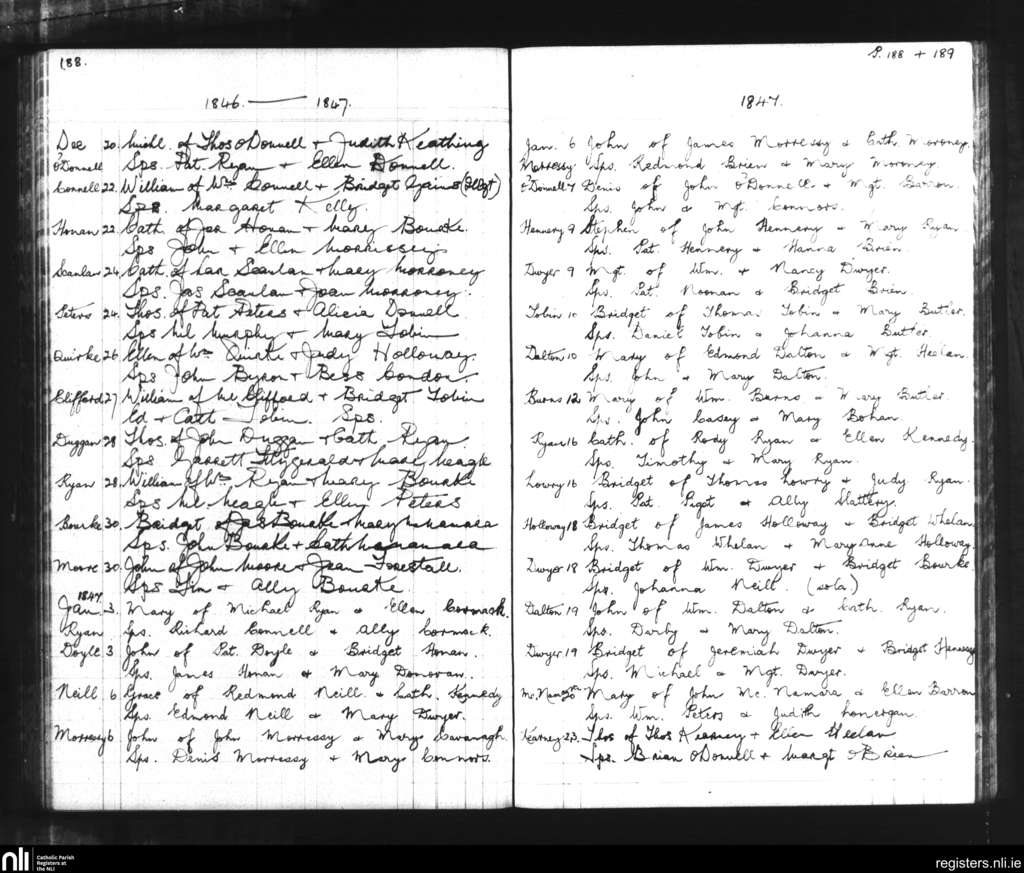 188.
1846. — 1847.
Dec 20. Michl. of Thos O'Donnell & Judith Keathing
O'Donnell Sps. Pat. Ryan & Ellen Donnell.
Connell 22. William of Wm Connell & Bridget (Illegt)
Sps. Margaret Kelly.
Honan 22. Cath. of Jas Honan & Mary Bourke.
Sps John & Ellen Morrissey
Scanlan 24. Cath. of Lar Scanlan & Mary Morroney
Sps. Jas Scanlan & Joan Morroney.
Peters 24. Thos. of Pat Peters & Alicia Donnell
Sps Mil Murphy & Mary Tobin
Quirke 26. Ellen of Wm Quirke & Judy Holloway.
Sps John Byron & Bess Condon.
Clifford 27 William of Ml Clifford & Bridget Tobin
Ed & Cath Tobin. Sps.
Duggan 28 Thos. of John Duggan & Cath Ryan
Sps Garrett Fitzgerald & Mary Meagle
Ryan 28. William of Wm Ryan & Mary Bourke
Sps Ml. Meagle & Ellen Peters
Bourke 30. Bridgt of Jas Bourke & Mary McNamara
Sps. John Bourke & Cath McNamara
Moore 30. John of John Moore & Jean Forestall.
Sps Tim & Ally Bourke.
1847
Jan. 3. Mary of Michael Ryan & Ellen Cormack.
Ryan Sps. Richard Connell & Ally Cormack.
Doyle 3 John of Pat. Doyle & Bridget Honan.
Sps. James Honan & Mary Donovan.
Neill 6 Grace of Redmond Neill & Cath. Kennedy
Sps. Edmond Neill & Mary Dwyer.
Morresy 6. John of John Morressy & Mary Cavanagh.
Sps. Denis Morressy & Mary Connors.
P. 188 + 189
1847.
Jan. 6 John of James Morressy & Cath. Moroney.
Morressy Sps. Redmond Brien & Mary Moroney.
O'Donnell 7 Denis of John O'Donnell & Mgt. Barron.
Sps. John & Mgt. Connors.
Hennery 9 Stephen of John Hennery & Mary Ryan.
Sps. Pat Hennery & Hanna Brien.
Dwyer 9 Mgt. of Wm. & Nancy Dwyer.
Sps. Pat. Noonan & Bridget Brien.
Tobin 10 Bridget of Thomas Tobin & Mary Butler.
Sps. Daniel Tobin & Johanna Butler
Dalton 10 Mary of Edmond Dalton & Mgt. Heelan.
Sps. John & Mary Dalton.
Burns 12 Mary of Wm. Burns & Mary Butler.
Sps. John Casey & Mary Bohan.
Ryan 16 Cath. of Rody Ryan & Ellen Kennedy.
Sps. Timothy & Mary Ryan.
Lowry 16 Bridget of Thomas Lowry & Judy Ryan.
Sps. Pat. Pigot & Ally Slattery.
Holloway 18 Bridget of James Holloway & Bridget Whelan.
Sps. Thomas Whelan & Mary Anne Holloway.
Dwyer 18 Bridget of Wm. Dwyer & Bridget Bourke.
Sps. Johanna Neill (sola)
Dalton 19 John of Wm. Dalton & Cath. Ryan.
Sps. Darby & Mary Dalton.
Dwyer 19 Bridget of Jeremiah Dwyer & Bridget Hennessy
Sps. Michael & Mgt. Dwyer.
Mc. Namara 20 Mary of John Mc. Namara & Ellen Barron
Sps. Wm. Peters & Judith Lonergan.
Kearney 23. Thos of Thos Kearney & Ellen Heelan
Sps. Brian O'Donnell & Margt O'Brien
nli Catholic Parish
Registers at
the NLI
registers.nli.ie